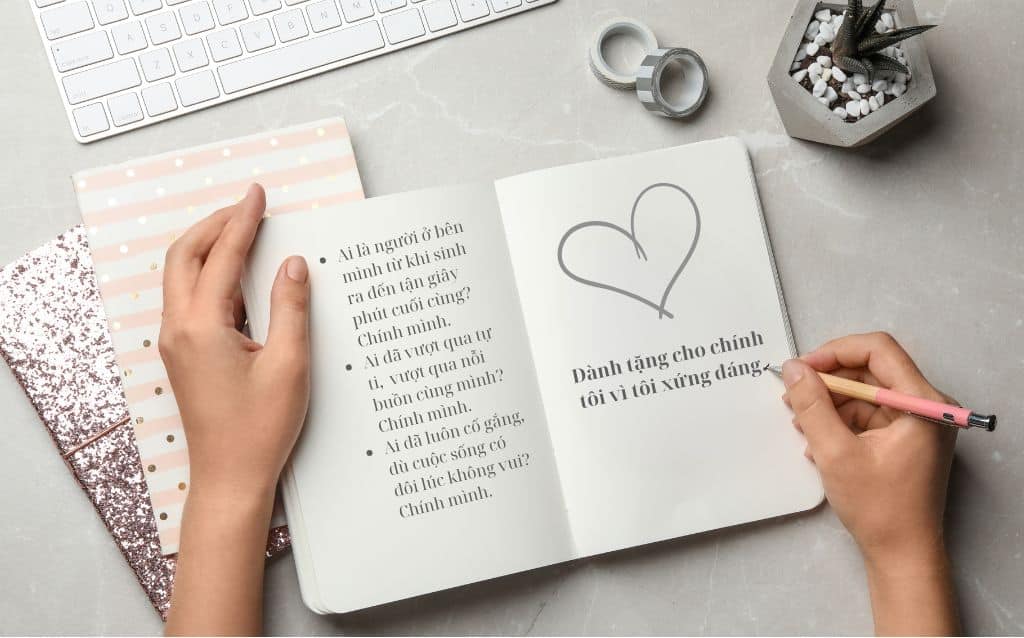 Ai là người ở bên
mình từ khi sinh
ra đến tận giây
phút cuối cùng?
Chính mình.
Ai đã vượt qua tự
ti, vượt qua nỗi
buồn cùng mình?
Chính mình.
Ai đã luôn cố gắng,
dù cuộc sống có
đôi lúc không vui?
Chính mình.
Dành tặng cho chính
tôi vì tôi xứng đáng.